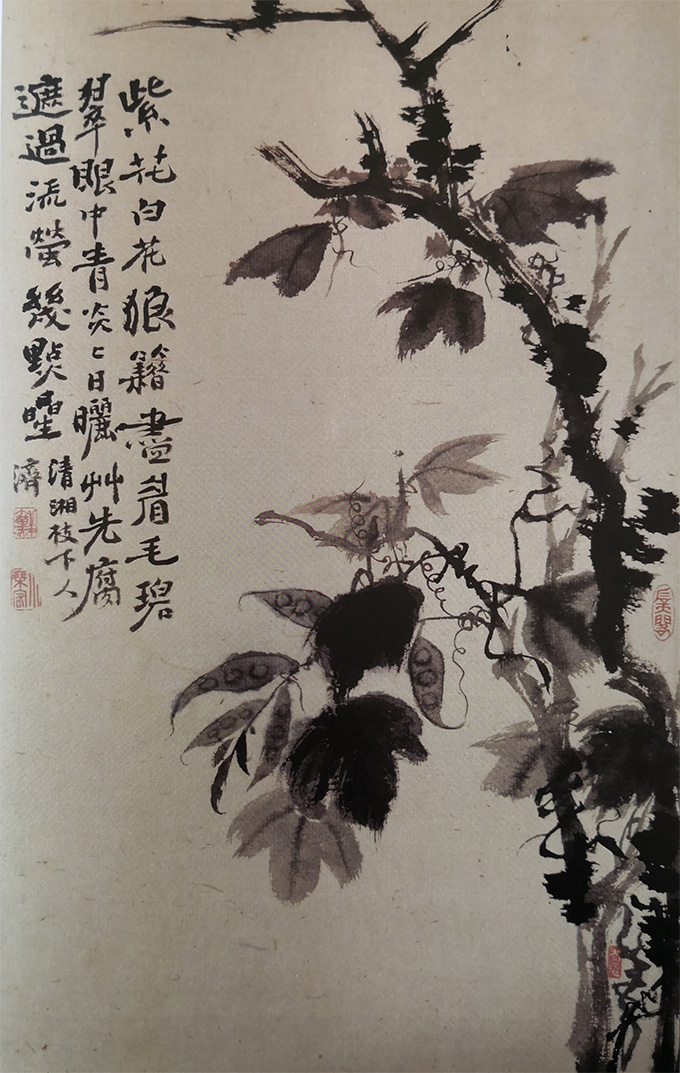 紫花白花狼籍盡眉毛碧
翠眼中青炎〻日曬艸先腐
遮過流螢幾點曐
清湘枝下人
濟